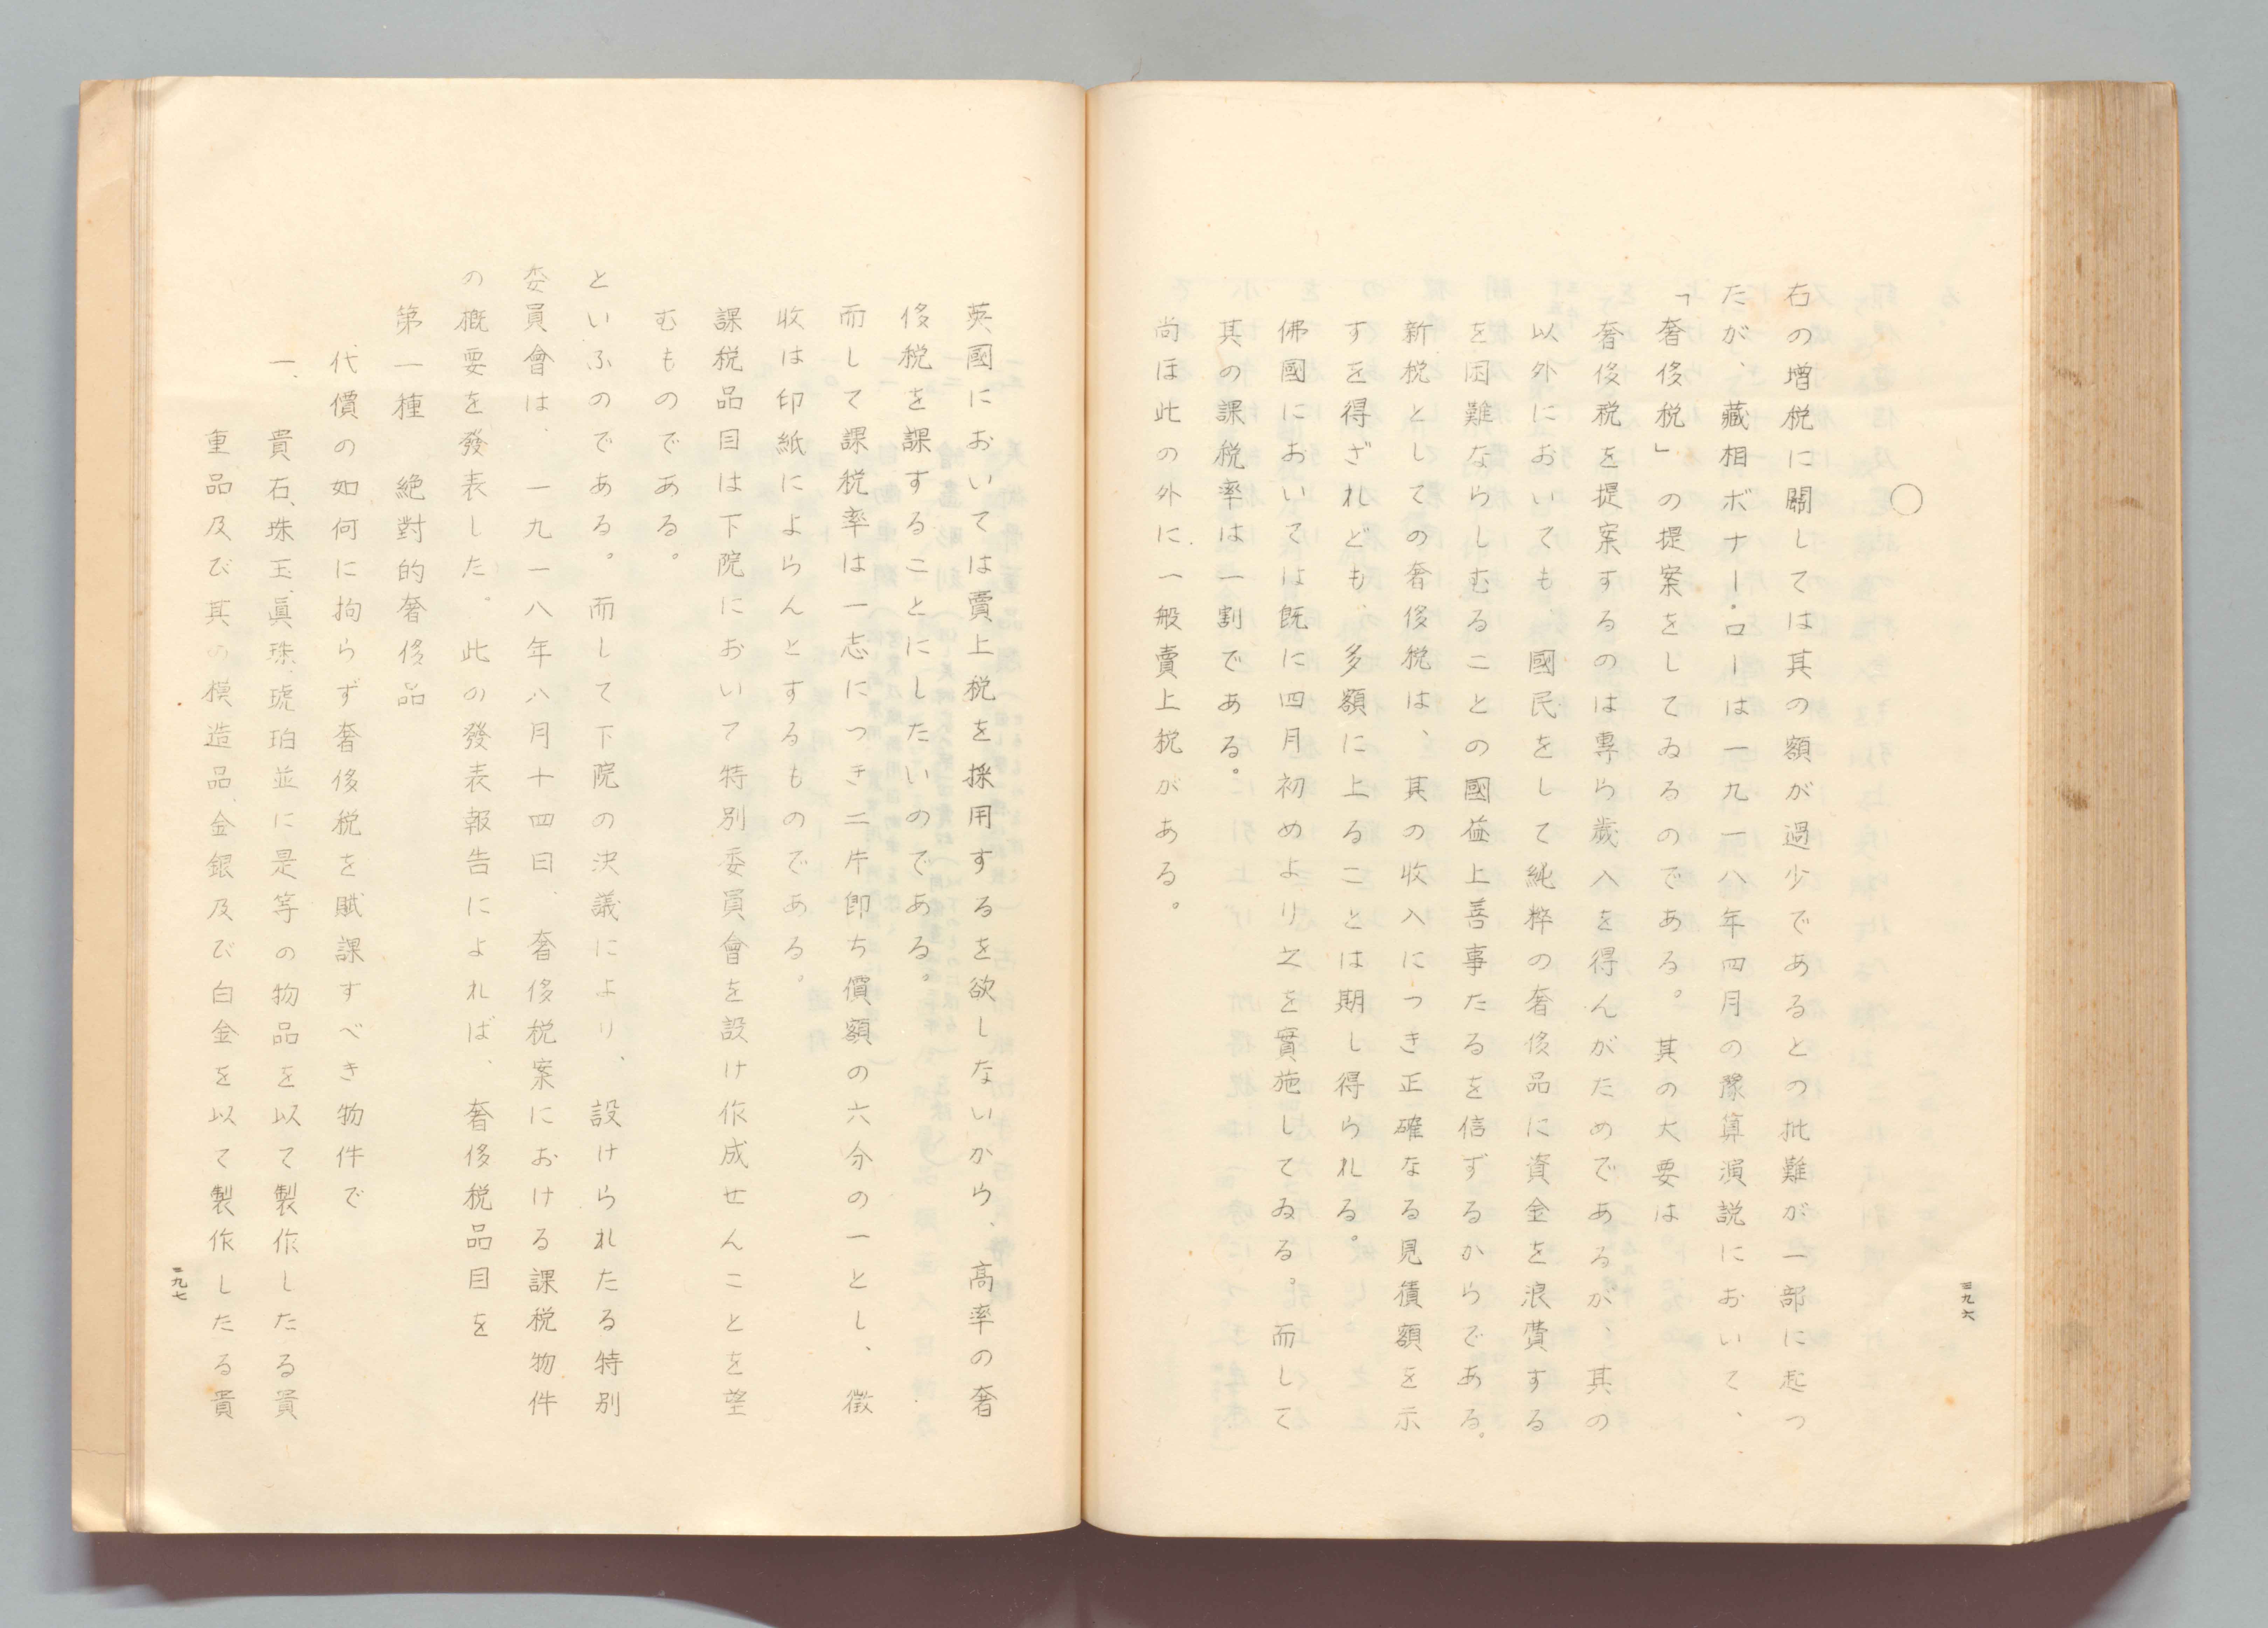 三九六
○
右の增税に關しては其の額が過少であるとの批難が一部に起つ
たが、藏相ボナー・ローは一九一八年四月の豫算演説において、
「奢侈税」の提案をしてゐるのである。其の大要は
奢侈税を提案するのは專ら歳入を得んがためであるが、其の
以外においても、國民をして純粹の奢侈品に資金を浪費する
を困難ならしむることの國益上善事たるを信ずるからである。
新税としての奢侈税は、其の收入につき正確なる見積額を示
すを得ざれども、多額に上ることは期し得られる。
佛國においては既に四月初めより之を實施してゐる。而して
其の課税率は一割である。
尚ほ此の外に一般賣上税がある。
英國においては賣上税を採用するを欲しないから、高率の奢
侈税を課することにしたいのである。
而して課税率は一志につき二片卽ち價額の六分の一とし、徵
收は印紙によらんとするものである。
課税品目は下院において特別委員會を設け作成せんことを望
むものである。
といふのである。而して下院の決議により、設けられたる特別
委員會は、一九一八年八月十四日、奢侈税案における課税物件
の概要を發表した。此の發表報告によれば、奢侈税品目を
第一種　絶對的奢侈品
代價の如何に拘らず奢侈税を賦課すべき物件で
一、貴石、珠玉、眞珠、琥珀並に是等の物品を以て製作したる貴
重品及び其の模造品、金銀及び白金を以て製作したる貴
三九七